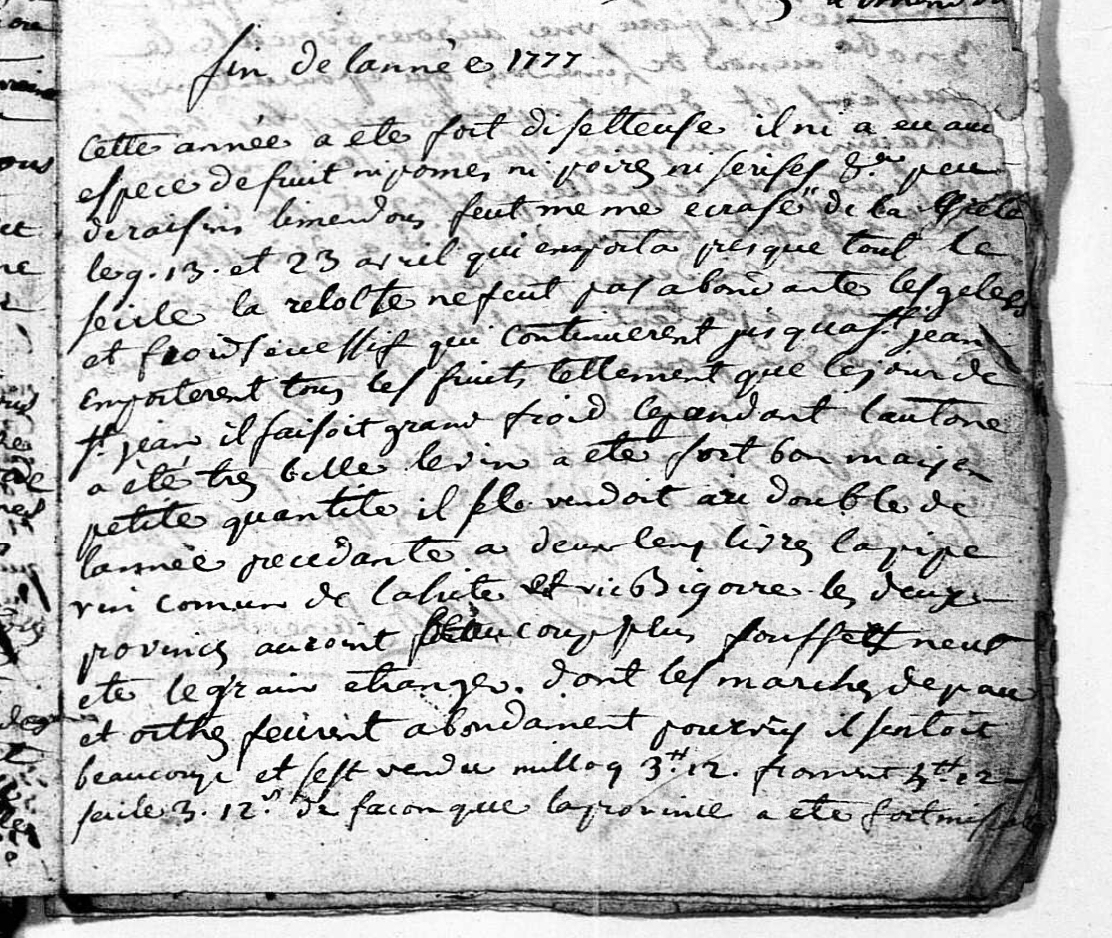 fin de lannèe 1777
Cette annèe a ete fort disetteuse il ni a eu au
espece de fruit ni pomes ni poires ni serises &.a peu
de raisins limendous feut meme ecrasé de la Grele
le 9. 13. et 23 avril qui emporta presque tout le
seicle la recolte ne feut pas abondante les gelees
et froids excessifs qui continuerent jusqua st. jean
emporterent tous les fruits tellement que le jour de
st. jean il faisoit grand froid cependant lautone
a èté tres belle le vin a eté fort bon mais en
petite quantite il se vendoit au double de
lannèe precedante a deux cens livres la pipe
vin comun de et vic Bigorre les deux
provinces auroint beaucoup plus souffert neut
ete le grain etranger. dont les marches de pau
et orthes feurent abondament pourvus il sortoit
beaucoup et sest vendu milloq 3.tt 12. froment 4tt 12
seicle 3. 12.s de facon que la province a ete fort